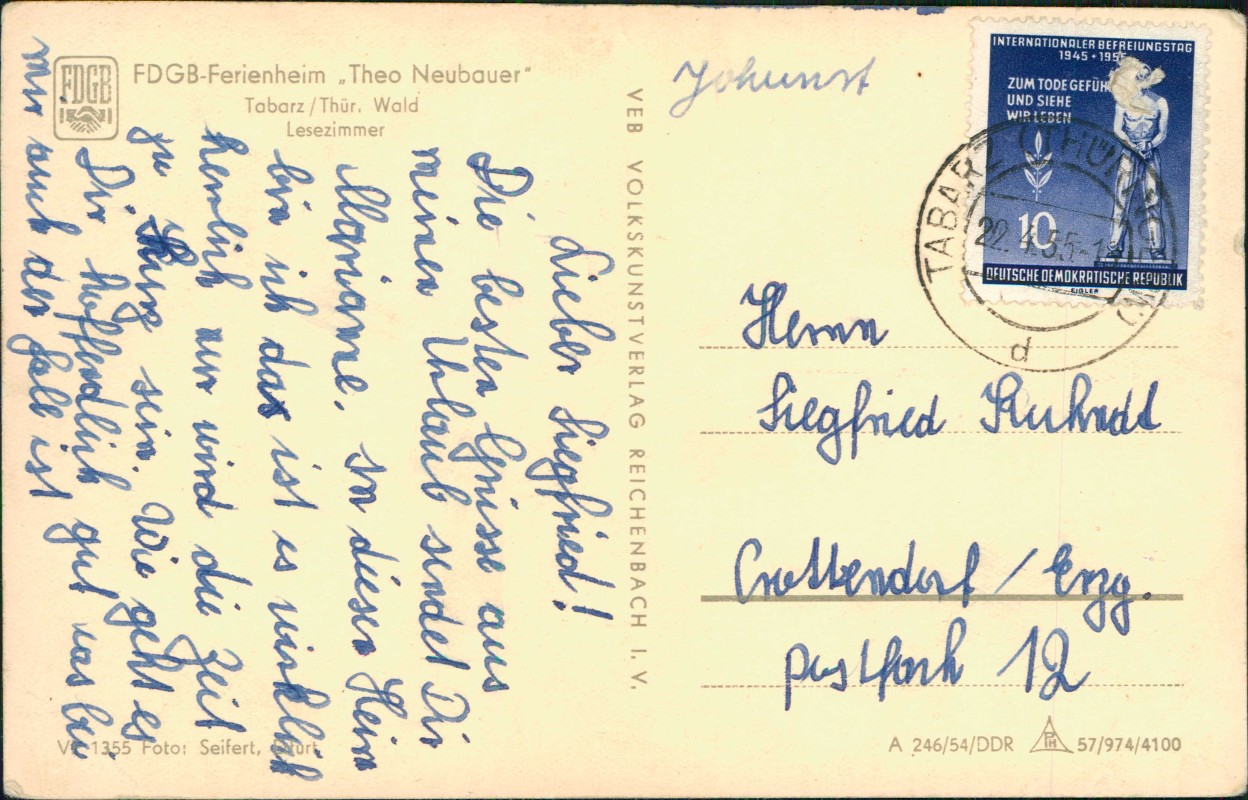 FDGB
FDGB-Ferienheim „Theo Neubauer"
Tabarz/Thür. Wald
Lesezimmer
Lieber Siegfried!
Die besten Grüsse aus
meinen Uhlaub sendet Dir
Mariane. In diesen Heim
bin ich das ist es wirklich
herrlich nur wird die Zeit
zu kurz sein. Wie geht es
Dir hoffendlich gut was bei
mir auch der fall ist
VEB VOLKSKUNSTVERLAG REICHENBACH I. V.
INTERNATIONALER BEFREIUNGSTAG
1945 • 1955
ZUM TODE GEFÜH
UND SIEHE
WIR LEBEN
10
DEUTSCHE DEMOKRATISCHE REPUBLIK
EIGLER
TABARZ (THÜRING
22.4.55
d
Herrn
Siegfried
Crottendorf / Erzg.
postfach 12
V 1355 Foto: Seifert, Erfurt
A 246/54/DDR
57/974/4100